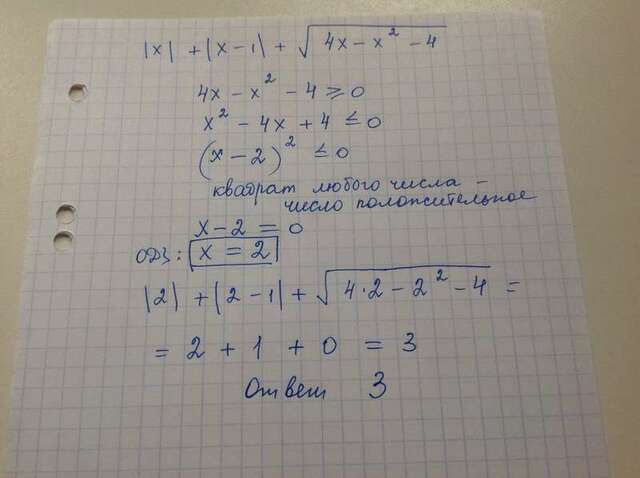 |x| + |x - 1| + √(4x - x² - 4)
4x - x² - 4 ≥ 0
x² - 4x + 4 ≤ 0
(x - 2)² ≤ 0
квадрат любого числа -
число положительное
x - 2 = 0
ОДЗ: x = 2
|2| + |2 - 1| + √(4·2 - 2² - 4) =
= 2 + 1 + 0 = 3
Ответ 3